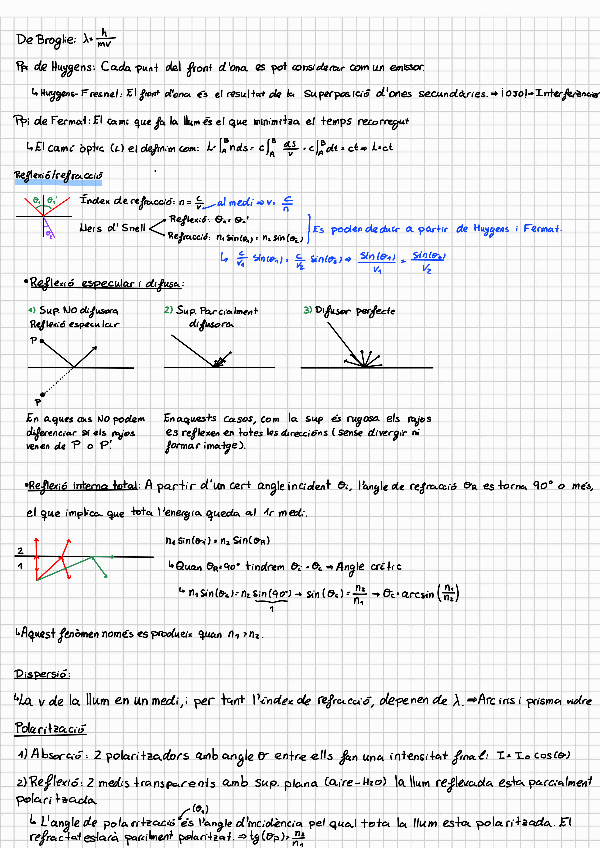 De Broglie: λ = h/mv
Ppi de Huygens: Cada punt del front d'ona es pot considerar com un emissor.
↳ Huygens-Fresnel: El front d'ona és el resultat de la superposició d'ones secundàries. → Interferències
Ppi de Fermat: El camí que fa la llum és el que minimitza el temps recorregut
↳ El camí òptic (L) el definim com: L = ∫_A^B n ds = c ∫_A^B ds/v = c ∫_A^B dt = ct ⇒ L = ct
Reflexió/refracció
θ₁ θ₁'
Índex de refracció: n = c/v al medi ⇒ v = c/n
Lleis d'Snell
Reflexió: θ₁ = θ₁'
Refracció: n₁ sin(θ₁) = n₂ sin(θ₂)
Es poden deduir a partir de Huygens i Fermat.
↳ c/v₁ sin(θ₁) = c/v₂ sin(θ₂) ⇒ sin(θ₁)/v₁ = sin(θ₂)/v₂
• Reflexió especular i difusa:
1) Sup. NO difusora
Reflexió especular
2) Sup. Parcialment
difusora
3) Difusor perfecte
P
P'
En aques cas NO podem
diferenciar si els rajos
venen de P o P'.
En aquests casos, com la sup és rugosa els rajos
es reflexen en totes les direccions (sense divergir ni
formar imatge).
• Reflexió interna total: A partir d'un cert angle incident θi, l'angle de refracció θR es torna 90° o més,
el que implica que tota l'energia queda al 1r medi.
2
1
n₁ sin(θi) = n₂ sin(θR)
↳ Quan θR = 90° tindrem θi = θc → Angle crític
↳ n₁ sin(θc) = n₂ sin(90°) → sin(θc) = n₂/n₁ → θc = arcsin(n₁/n₂)
1
↳ Aquest fenòmen només es produeix quan n₁ > n₂.
Dispersió:
↳ La v de la llum en un medi, i per tant l'índex de refracció, depenen de λ. ⇒ Arc iris i prisma vidre
Polarització
1) Absorció: 2 polaritzadors amb angle θ entre ells fan una intensitat final: I = I₀ cos(θ)
2) Reflexió: 2 medis transparents amb sup. plana (aire-H₂O) la llum reflevada esta parcialment
polaritzada
(θp)
↳ L'angle de polarització és l'angle d'incidència pel qual tota la llum esta polaritzada. El
refractat estarà parcilment polaritzat. ⇒ tg(θp) = n₂/n₁